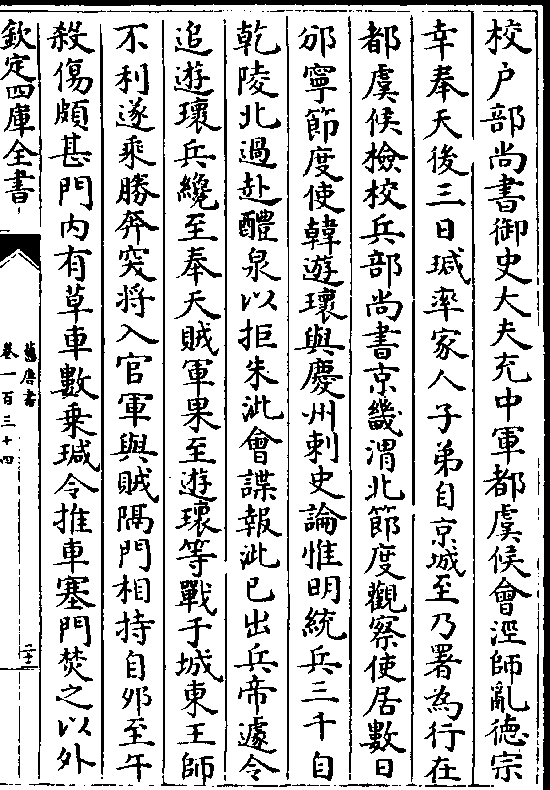 校户部尚書御史大夫充中軍都虞候會涇師亂德宗
幸奉天後三日瑊率家人子弟自京城至乃署為行在
都虞候檢校兵部尚書京畿渭北節度觀察使居數日
邠寧節度使韓遊瓌與慶州刺史論惟明統兵三千自
乾陵北過赴醴泉以拒朱泚會諜報泚已出兵帝遽令
追遊瓌兵纔至奉天賊軍果至遊瓌等戰于城東王師
不利遂乘勝奔突將入官軍與賊隔門相持自夘至午
殺傷頗甚門内有草車數乗瑊令推車塞門焚之以外
欽定四庫全書
舊唐書
卷一百三十四
二十